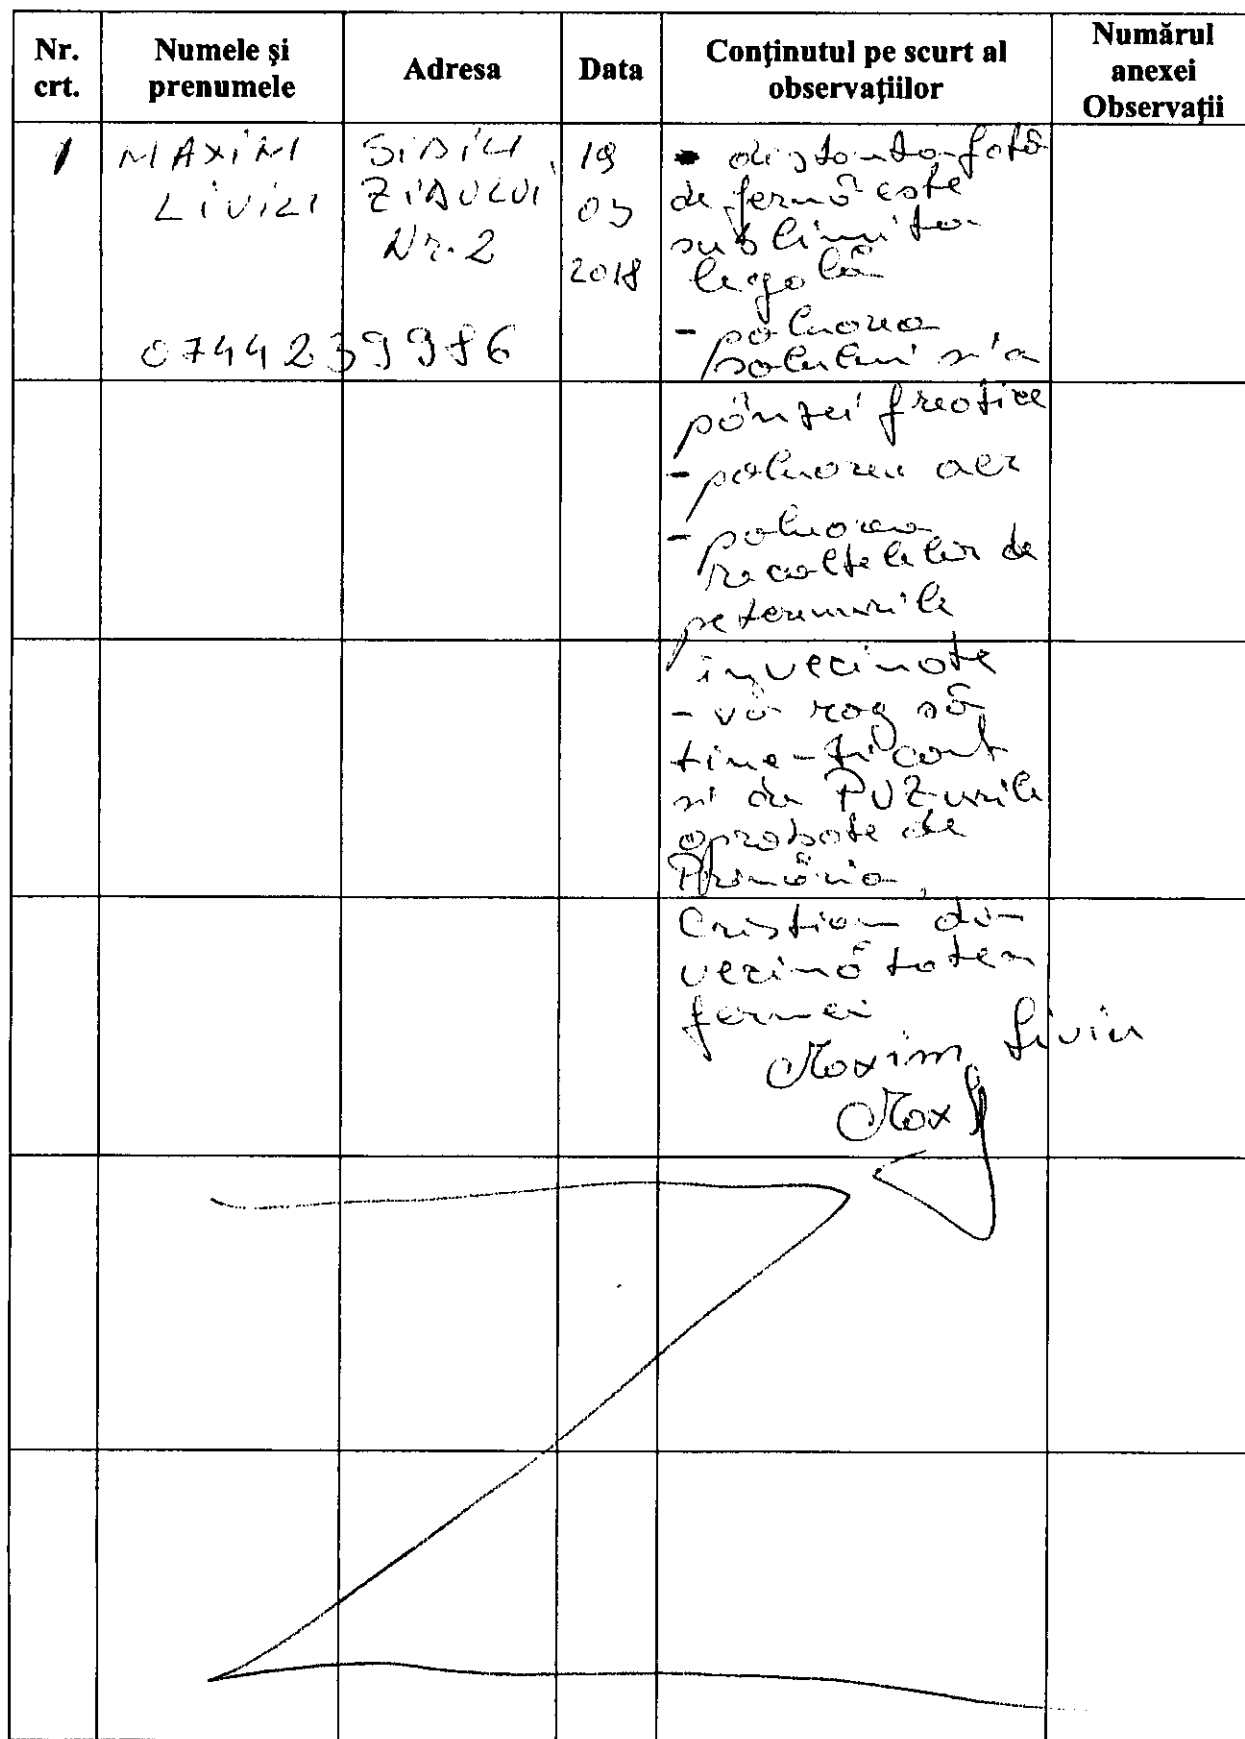 Nr. crt.
Numele și prenumele
Adresa
Data
Conținutul pe scurt al observațiilor
Numărul anexei Observații
1
MAXIM
LIVIU
SIBIU,
ZIDULUI
Nr. 2
0744239986
19
03
2018
- distanta fată
de fermă este
sub limita
legală
- poluarea
solului si a
pânzei freatice
- poluarea aer
- poluarea
recoltelelor de
pe terenurile
invecinate
- vă rog să
tine-ti cont
si de PUZurile
aprobate de
Primăria
Cristian din
vecinătatea
fermei
Maxim Liviu